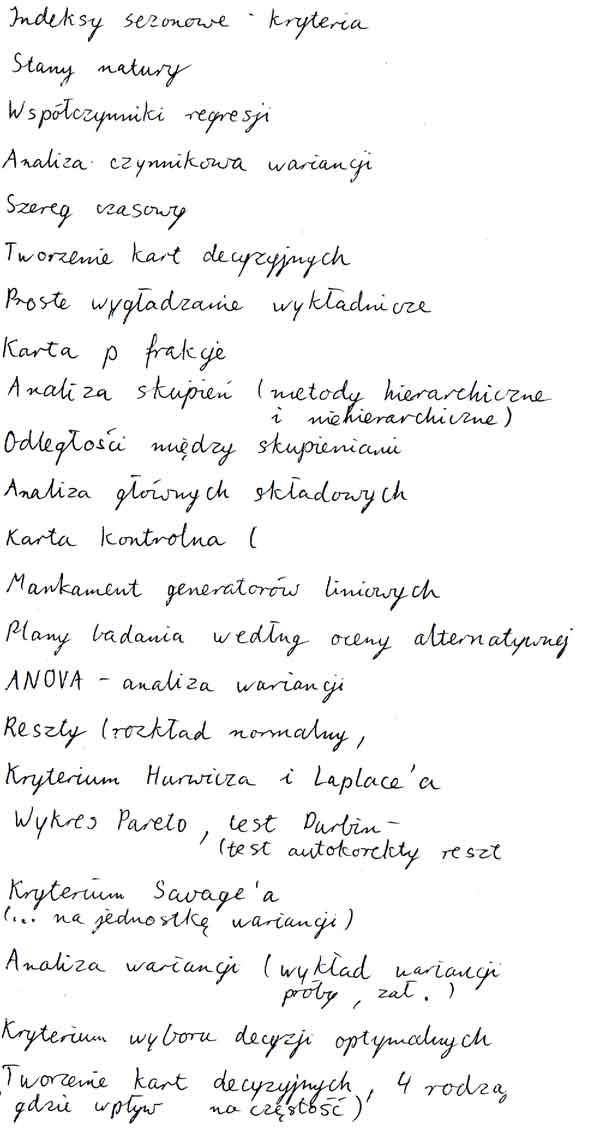 Indeksy sezonowe - kryteria
Stany natury
Współczynniki regresji
Analiza czynnikowa wariancji
Szereg czasowy
Tworzenie kart decyzyjnych
Proste wygładzanie wykładnicze
Karta p frakcje
Analiza skupień (metody hierarchiczne
i niehierarchiczne)
Odległości między skupieniami
Analiza głównych składowych
Karta kontrolna (
Mankament generatorów liniowych
Plany badania według oceny alternatywnej
ANOVA - analiza wariancji
Reszty (rozkład normalny,
Kryterium Hurwicza i Laplace'a
Wykres Pareto, test Durbin-
(test autokorekty reszt
Kryterium Savage'a
(... na jednostkę wariancji)
Analiza wariancji (wykład wariancji
próby, zał.)
Kryterium wyboru decyzji optymalnych
Tworzenie kart decyzyjnych, 4 rodzą
gdzie wpływ na częstość)